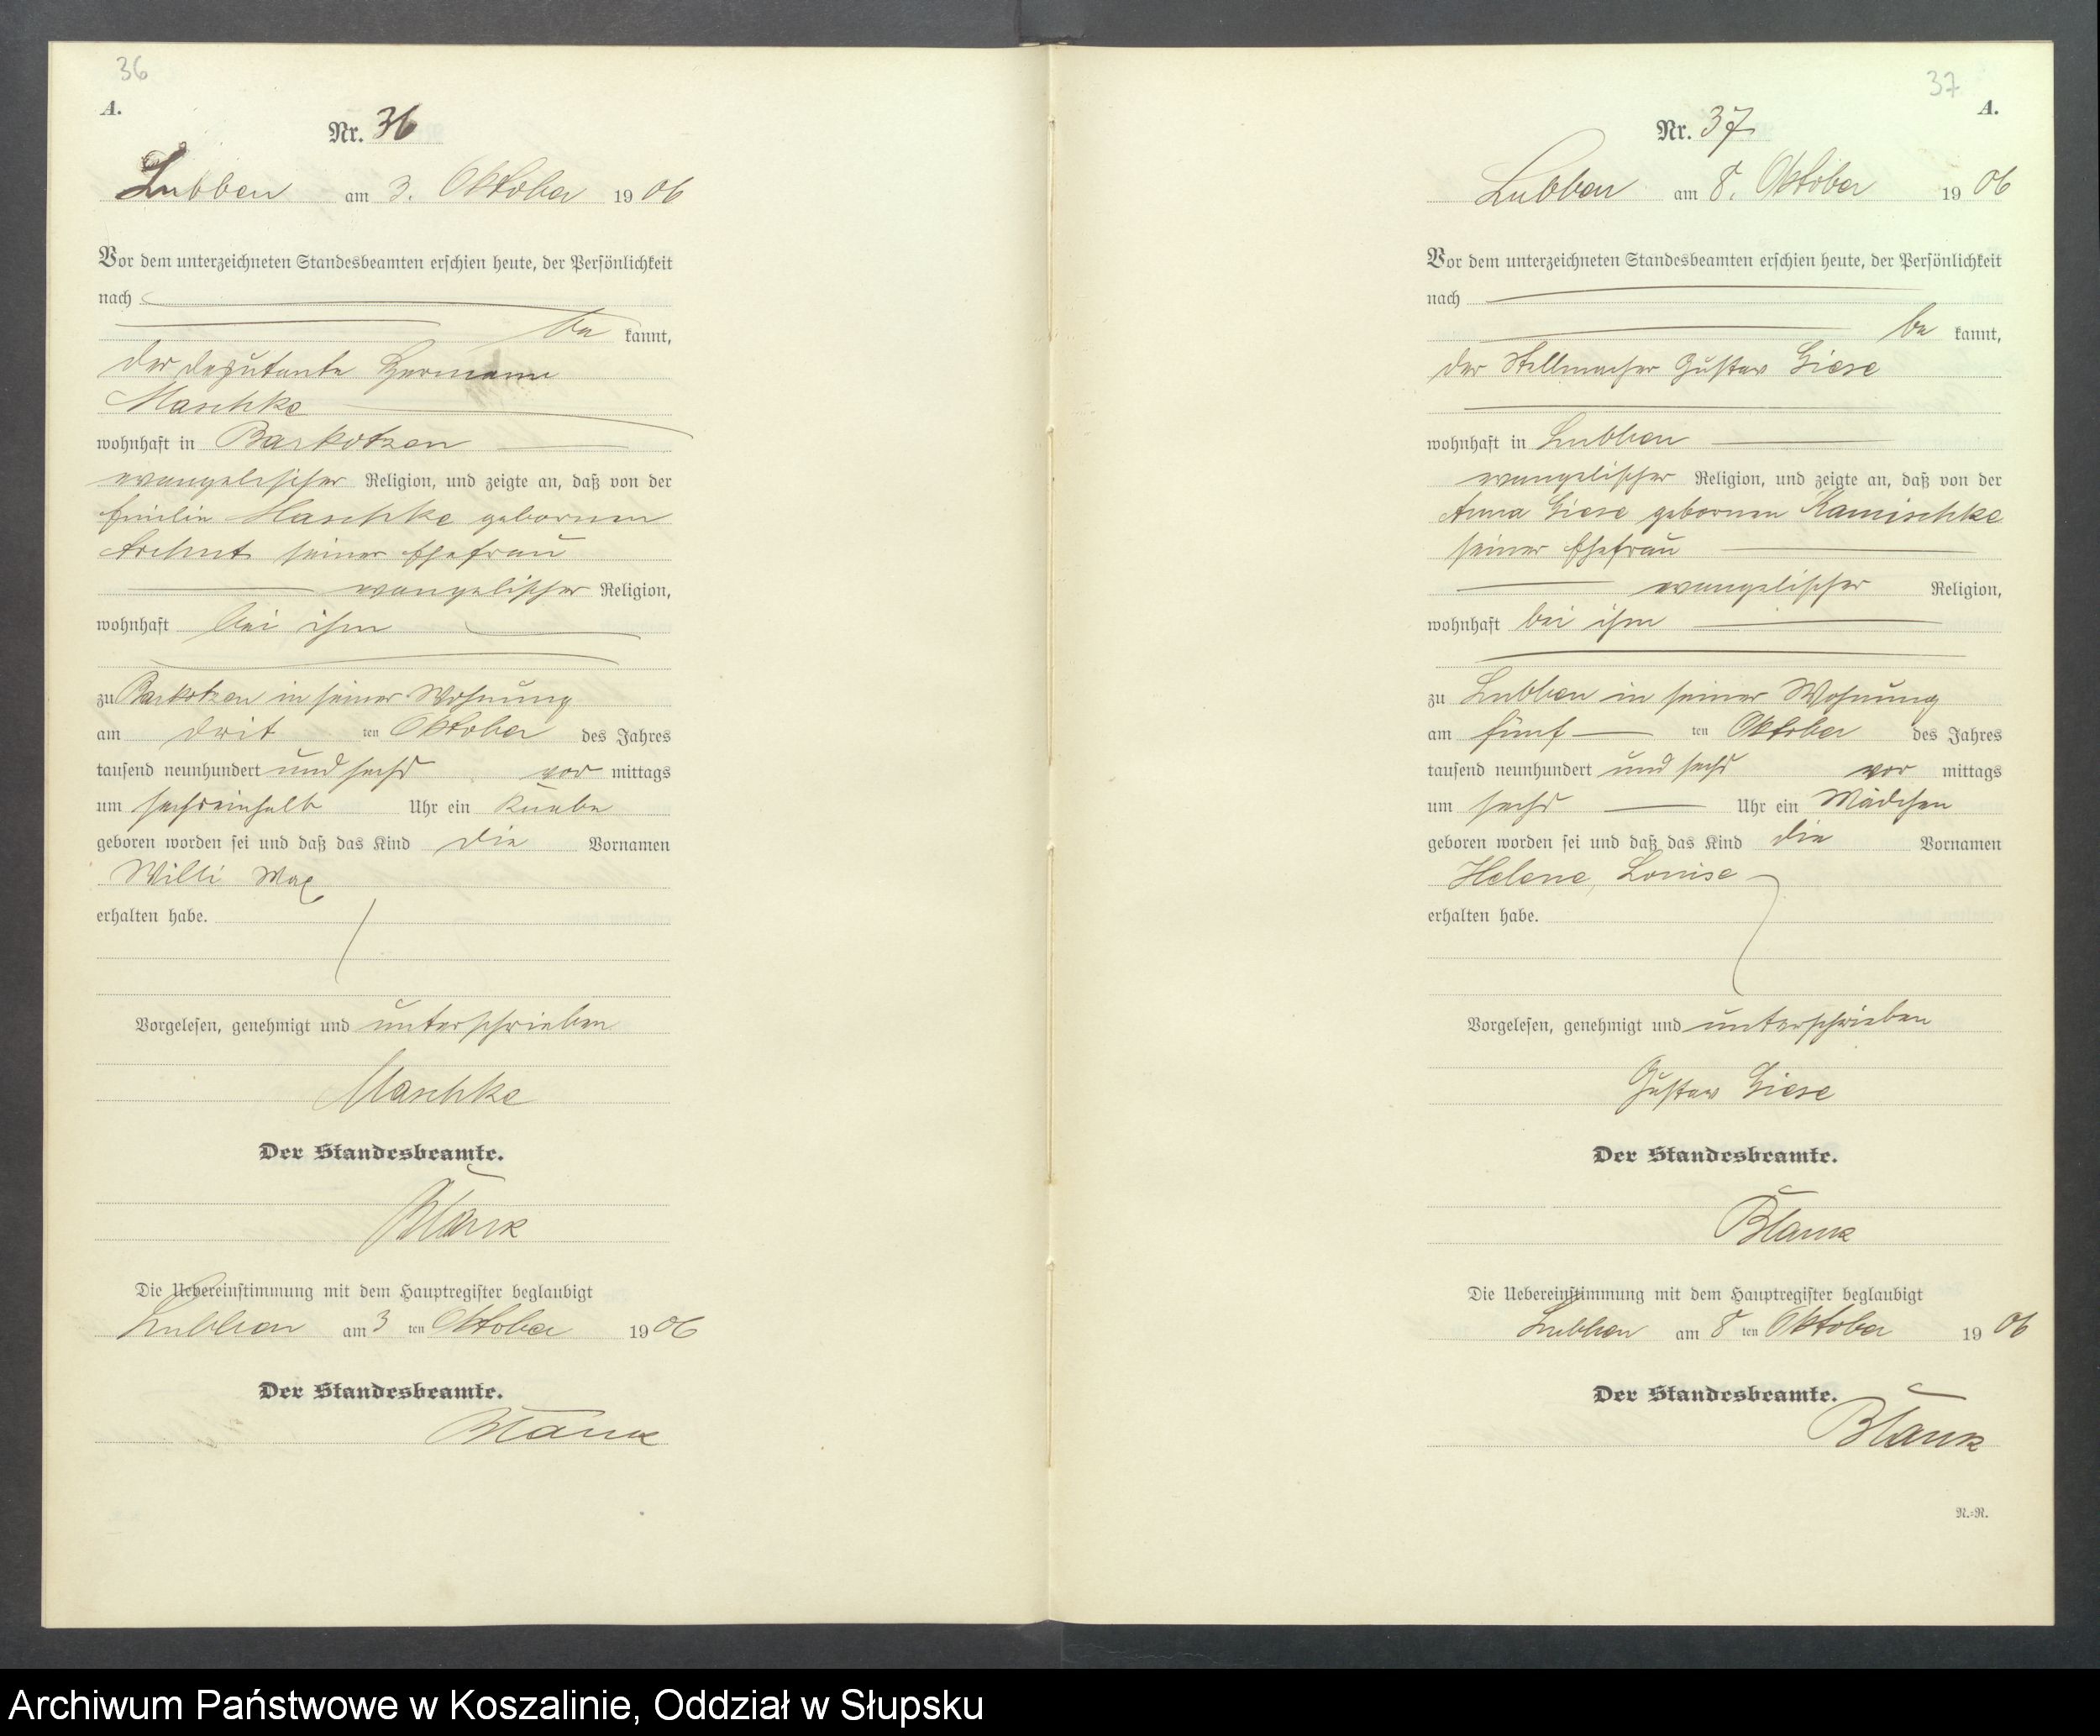 36
A.
Nr. 36
Lubben am 3. Oktober 1906
Vor dem unterzeichneten Standesbeamten erschien heute, der Persönlichkeit
nach
be kannt,
der Deputante Hermann
Maschke
wohnhaft in Barkotzen
evangelischer Religion, und zeigte an, daß von der
Emilie Maschke geborenen
seiner Ehefrau
evangelischer Religion,
wohnhaft bei ihm
zu Barkotzen in seiner Wohnung
am drit ten Oktober des Jahres
tausend neunhundert und sechs vor mittags
um sechseinhalb Uhr ein Knabe
geboren worden sei und daß das Kind die Vornamen
Willi Max
erhalten habe.
Vorgelesen, genehmigt und unterschrieben
Maschke
Der Standesbeamte.
Blank
Die Uebereinstimmung mit dem Hauptregister beglaubigt
Lubben am 3 ten Oktober 1906
Der Standesbeamte.
Blank
37
A.
Nr. 37
Lubben am 8. Oktober 1906
Vor dem unterzeichneten Standesbeamten erschien heute, der Persönlichkeit
nach
be kannt,
der Stellmacher Gustav Giese
wohnhaft in Lubben
evangelischer Religion, und zeigte an, daß von der
Anna Giese geborenen Kamischke
seiner Ehefrau
evangelischer Religion,
wohnhaft bei ihm
zu Lubben in seiner Wohnung
am fünf ten Oktober des Jahres
tausend neunhundert und sechs vor mittags
um sechs Uhr ein Mädchen
geboren worden sei und daß das Kind die Vornamen
Helene, Louise
erhalten habe.
Vorgelesen, genehmigt und unterschrieben
Gustav Giese
Der Standesbeamte.
Blank
Die Uebereinstimmung mit dem Hauptregister beglaubigt
Lubben am 8 ten Oktober 1906
Der Standesbeamte.
Blank
R.-R.
Archiwum Państwowe w Koszalinie, Oddział w Słupsku